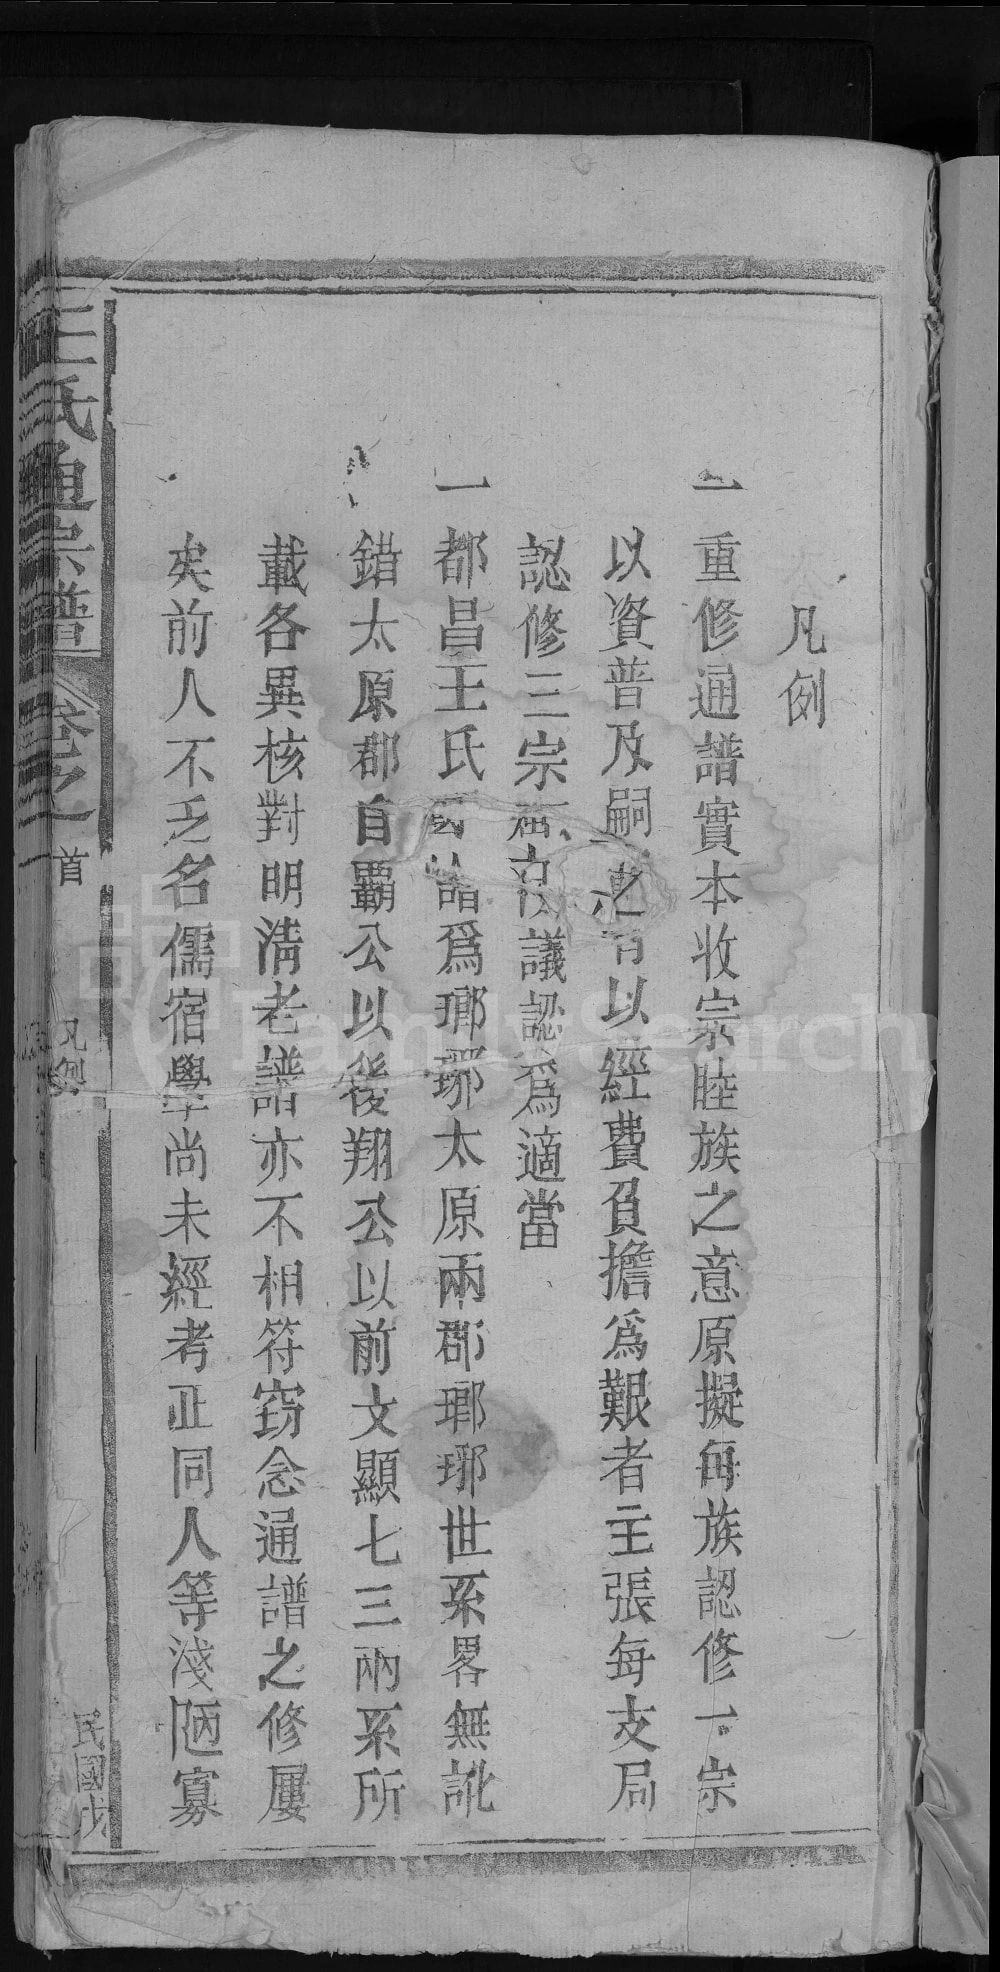 凡例
一重修通譜實本收宗睦族之意原擬每族認修一宗
以資普及嗣以經費負擔爲艱者主張每支局
認修三宗議認爲適當
一都昌王氏譜爲瑯琊太原兩郡瑯琊世系畧無訛
錯太原郡自霸公以後翔公以前文顯七三兩系所
載各異核對明淸老譜亦不相符窃念通譜之修屢
矣前人不乏名儒宿學尚未經考正同人等淺陋寡
王氏通宗譜 卷之首 凡例 民國戊
FamilySearch